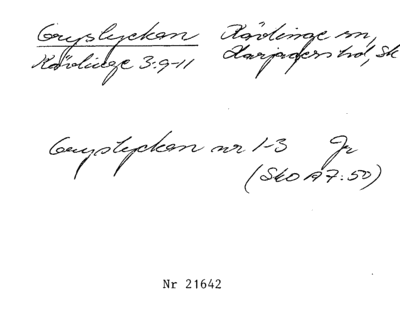 Gryslyckan Kävlinge sn,
Kävlinge 3:9-11 Harjagers hd, Sk
Gryslyckan nr 1-3 Jr
(Sk0 A7:50)
Nr 21642